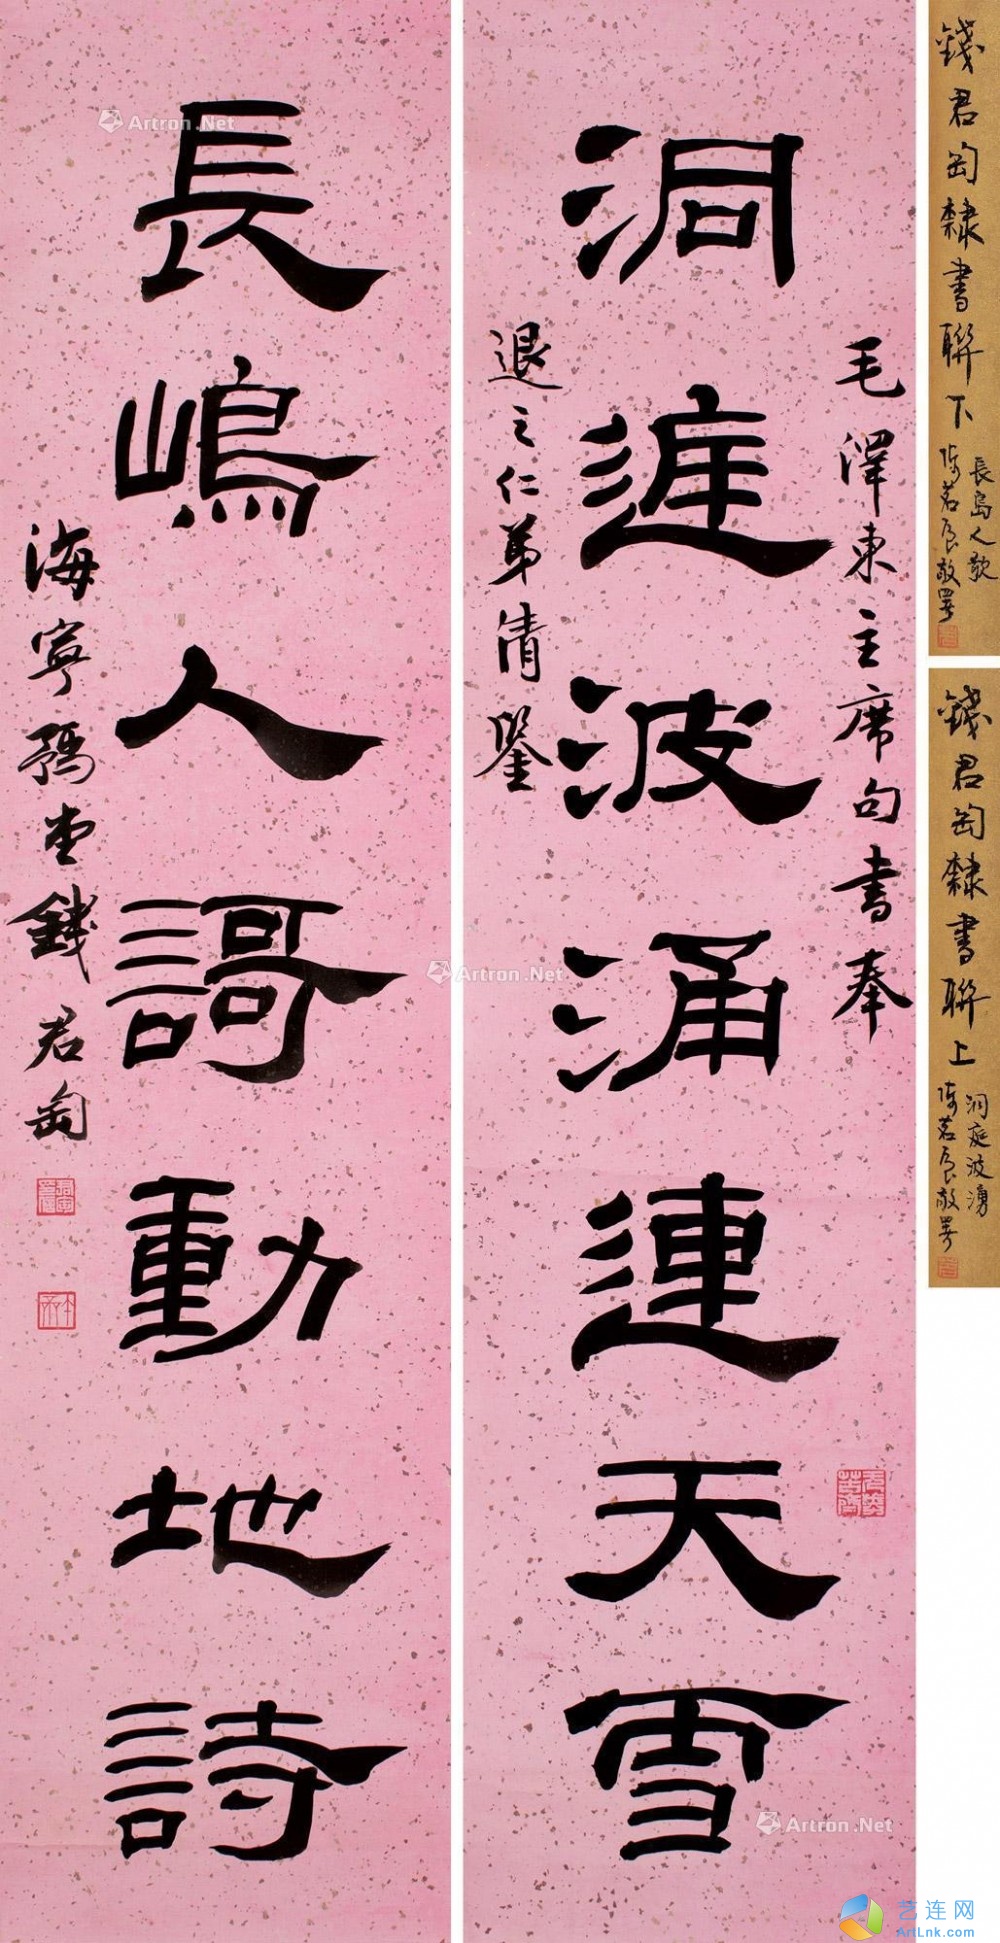 毛澤東主席句書奉
洞庭波涌連天雪
退之仁弟清鑒
長嶋人謌動地詩
海寧豫堂錢君匋
錢君匋隸書聯下
長島人歌
陳茗屋敬署
錢君匋隸書聯上
洞庭波湧
陳茗屋敬署
Artron.Net
Artron.Net
Artron.Net
艺连网
ArtLnk.com